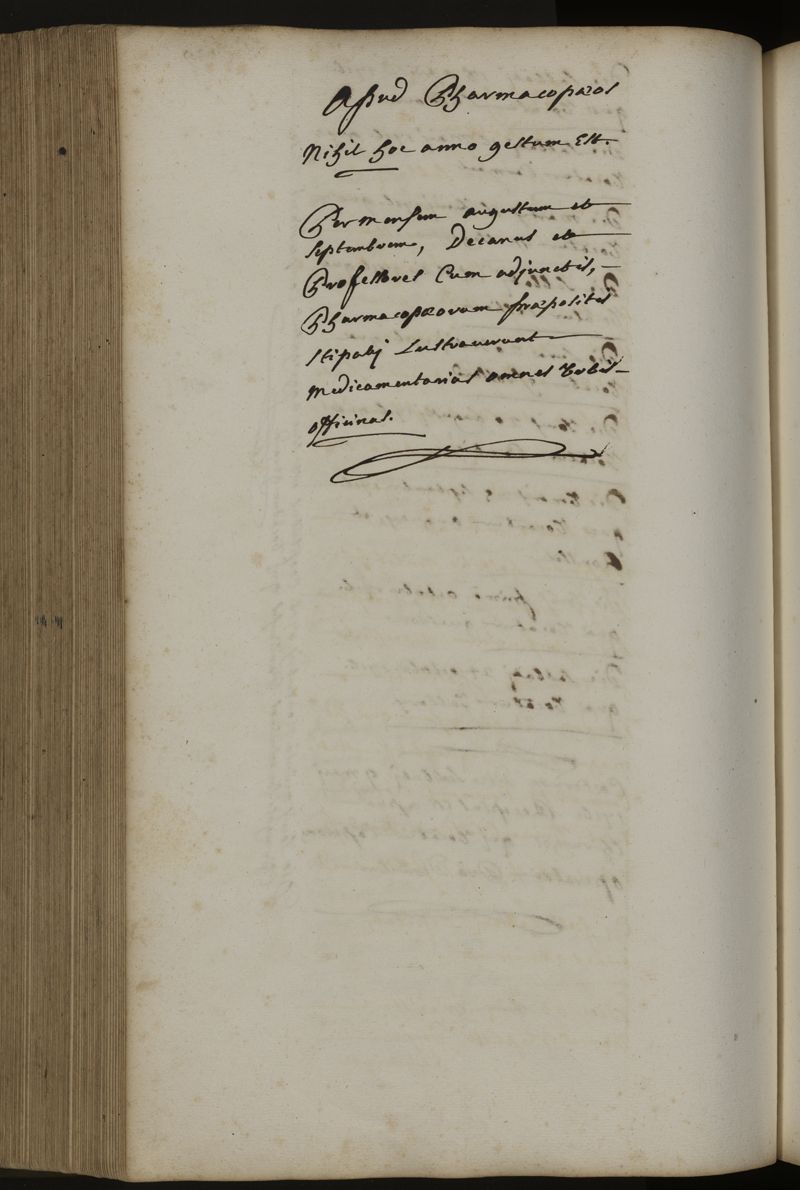 Apud Pharmacopæos
Nihil hoc anno gestum Est.
Per mensem augustum et
septembrem, Decanus et
Professores Cum adjunctis,
Pharmacopæorum præpositis
stipatj Lustraverunt
medicamentarias omnes Urbis
officinas.